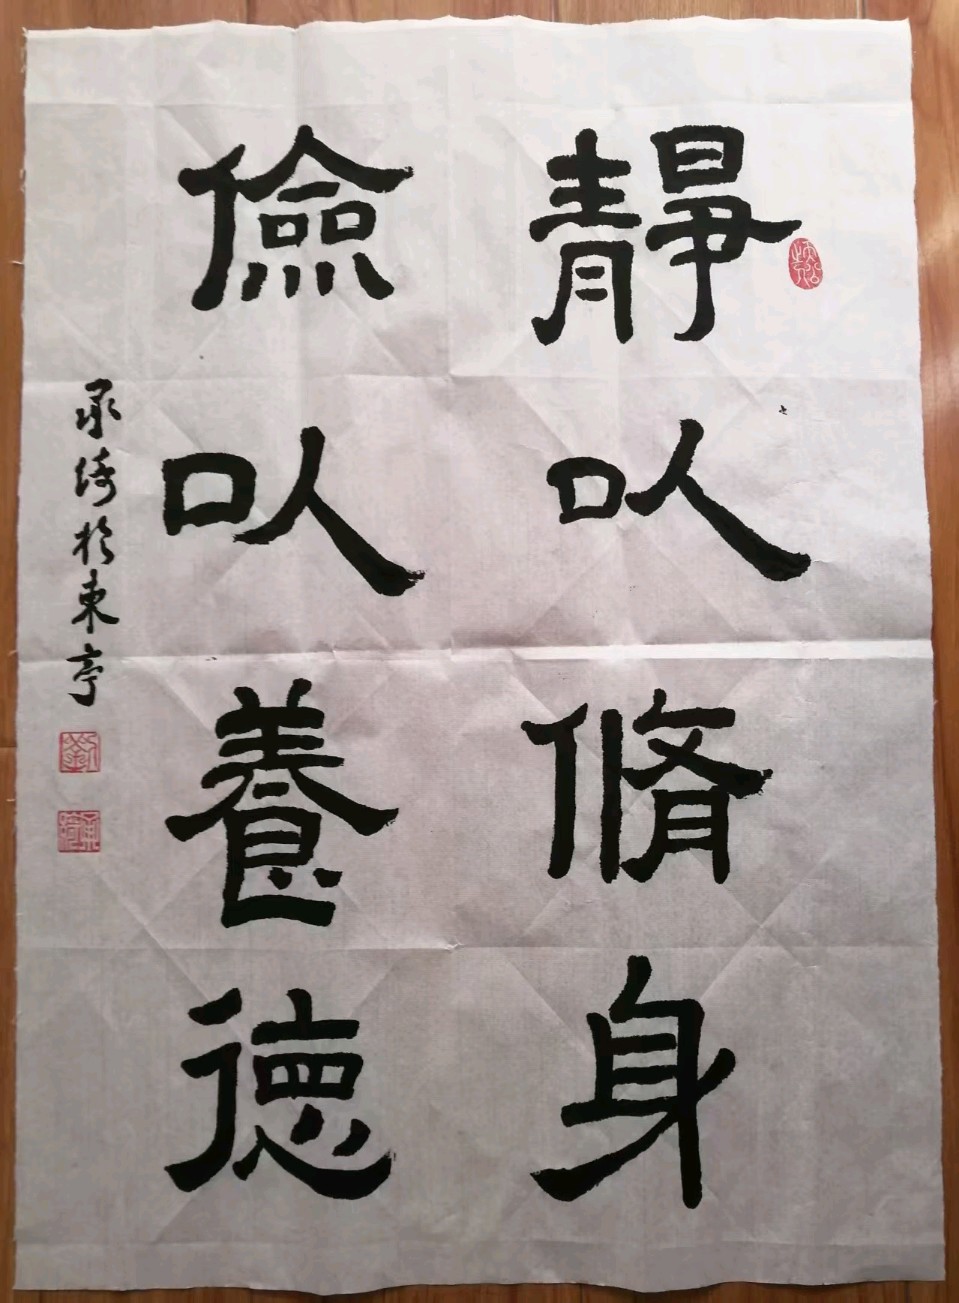 靜以脩身
儉以養德
承綺於東亭